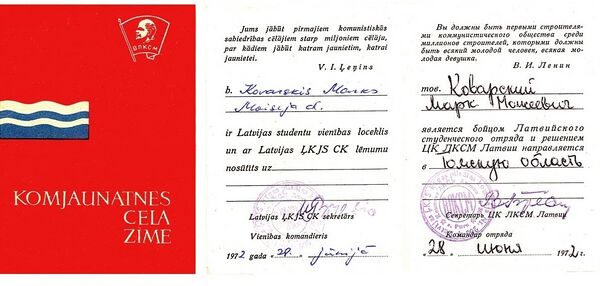 ВЛКСМ
KOMJAUNATNES
CEĻA
ZĪME
Jums jābūt pirmajiem komunistiskās
sabiedrības cēlājiem starp miljoniem cēlāju,
par kādiem jābūt katram jaunietim, katrai
jaunietei.
V. I. Ļeņins
b. Kovarskis Marks
Moiseja d.
ir Latvijas studentu vienības loceklis
un ar Latvijas ĻKJS CK lēmumu
nosūtīts uz
Latvijas ĻKJS CK sekretārs
Vienības komandieris
1972 gada «28. jūnijā
Вы должны быть первыми строителя-
ми коммунистического общества среди
миллионов строителей, которыми должны
быть всякий молодой человек, всякая мо-
лодая девушка.
В. И. Ленин
тов. Коварский
Марк Моисеевич
является бойцом Латвийского
студенческого отряда и решением
ЦК ЛКСМ Латвии направляется
в Томскую область
Секретарь ЦК ЛКСМ Латвии
Командир отряда
«28» июня 1972 г.